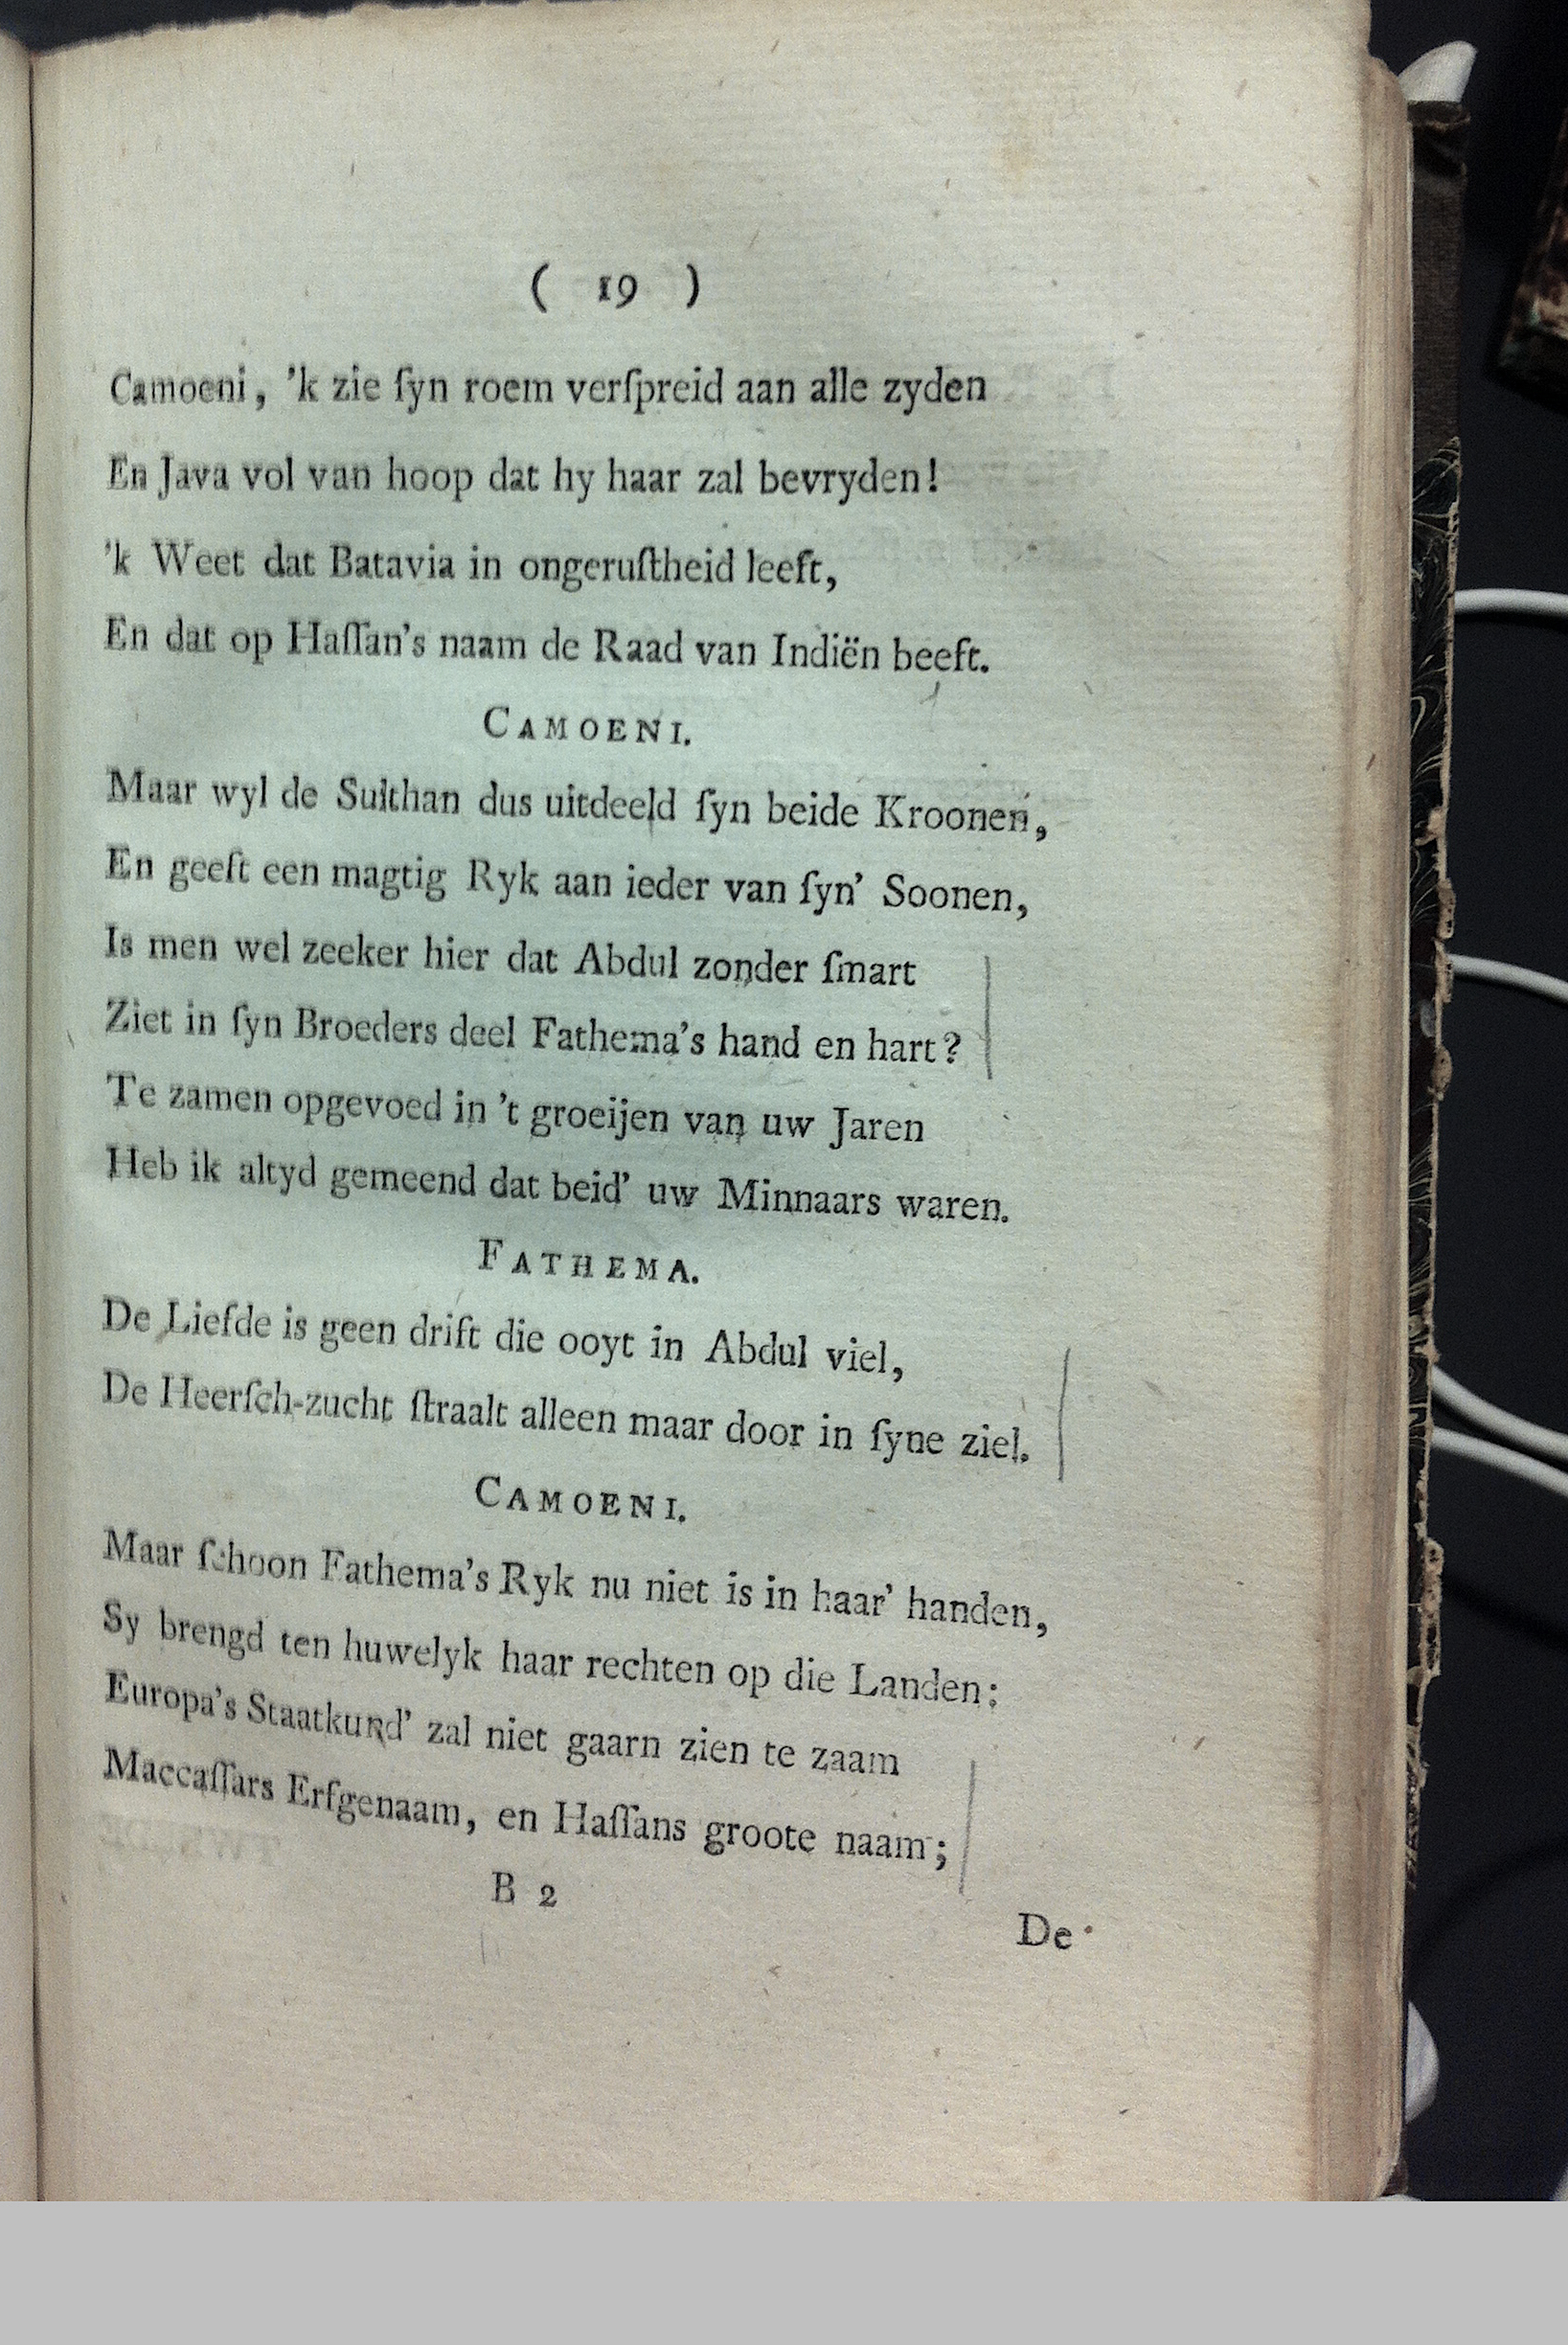 ( 19 )
Camoeni, 'k zie ſyn roem verſpreid aan alle zyden
En Java vol van hoop dat hy haar zal bevryden!
'k Weet dat Batavia in ongeruſtheid leeft,
En dat op Haſſan's naam de Raad van Indiën beeft.
CAMOENI.
Maar wyl de Sulthan dus uitdeeld ſyn beide Kroonen,
En geeft een magtig Ryk aan ieder van ſyn' Soonen,
Is men wel zeeker hier dat Abdul zonder ſmart
Ziet in ſyn Broeders deel Fathema's hand en hart?
Te zamen opgevoed in 't groeijen van uw Jaren
Heb ik altyd gemeend dat beid' uw Minnaars waren.
FATHEMA.
De Liefde is geen drift die ooyt in Abdul viel,
De Heerſch-zucht ſtraalt alleen maar door in ſyne ziel.
CAMOENI.
Maar ſchoon Fathema's Ryk nu niet is in haar' handen,
Sy brengd ten huwelyk haar rechten op die Landen:
Europa's Staatkund' zal niet gaarn zien te zaam
Maccaſſars Erfgenaam, en Haſſans groote naam;
B 2
De